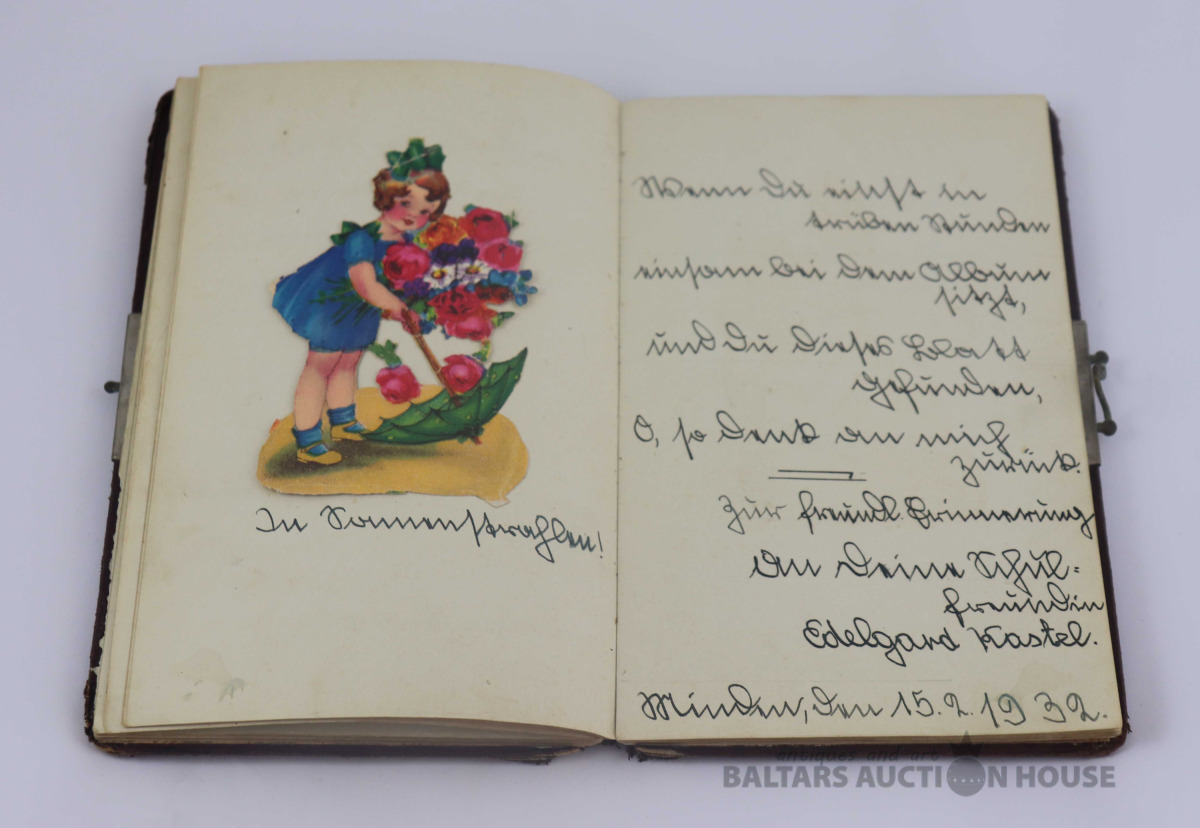 In Sonnenstrahlen!
Wenn Du einst in
trüben Stunden
einsam bei dem Album
sitzt,
und Du dieses Blatt
gefunden,
O, so denk an mich
zurück.
Zur freundl. Erinnerung
an Deine Schul-
freundin
Edelgard Kastel.
Minden, den 15.2.1932.
antiques and art
BALTARS AUCTION HOUSE